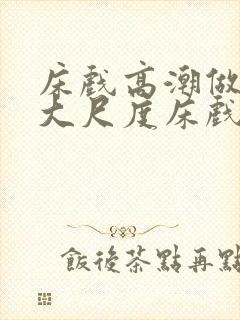 床戲高潮做
大尺度床戲
飯後茶點再點